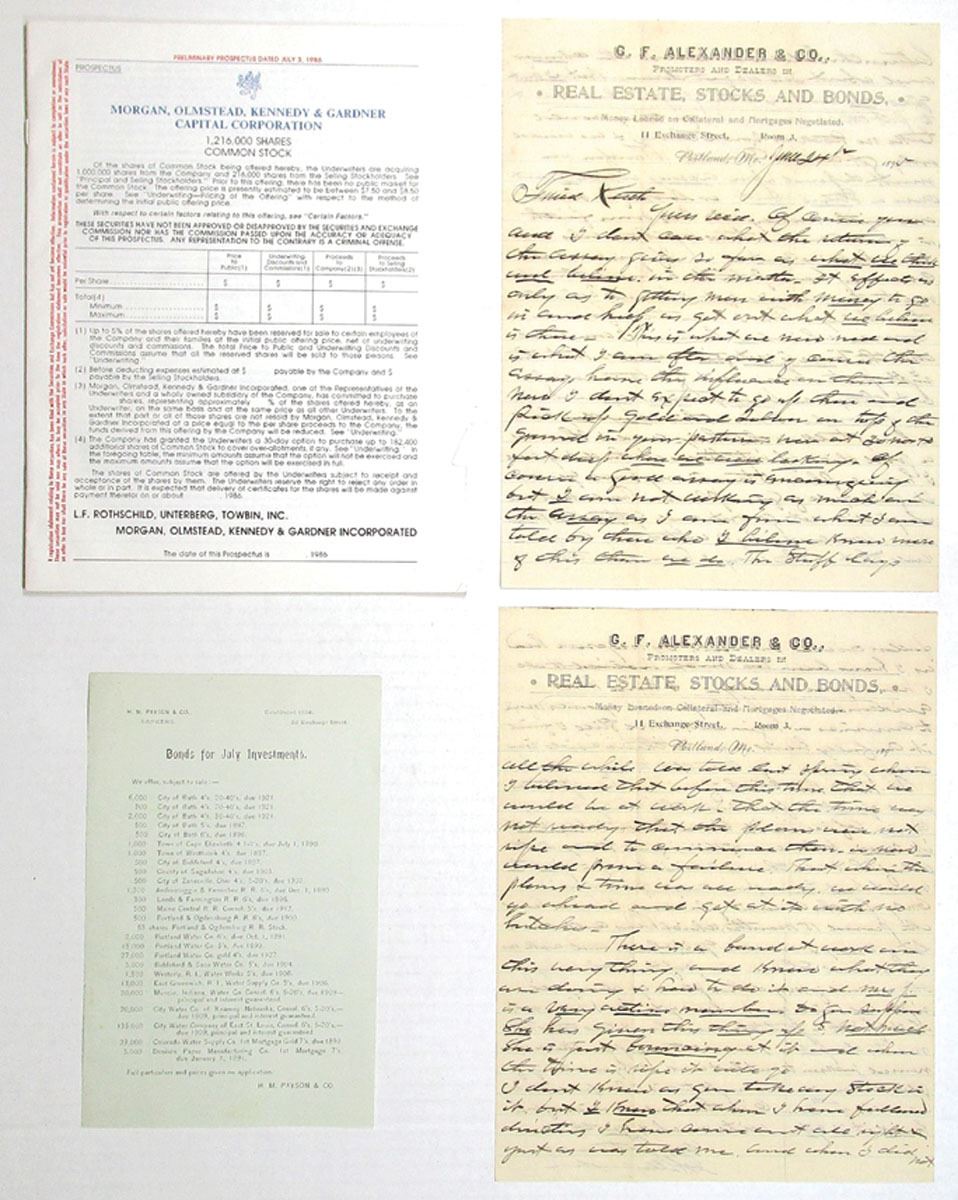 PRELIMINARY PROSPECTUS DATED JULY 3, 1986
PROSPECTUS
MORGAN, OLMSTEAD, KENNEDY & GARDNER
CAPITAL CORPORATION
1,216,000 SHARES
COMMON STOCK
Of the shares of Common Stock being offered hereby, the Underwriters are acquiring
1,000,000 shares from the Company and 216,000 shares from the Selling Stockholders. See
"Principal and Selling Stockholders." Prior to this offering, there has been no public market for
the Common Stock. The offering price is presently estimated to be between $7.50 and $8.50
per share. See "Underwriting—Pricing of the Offering" with respect to the method of
determining the initial public offering price.
With respect to certain factors relating to this offering, see "Certain Factors."
THESE SECURITIES HAVE NOT BEEN APPROVED OR DISAPPROVED BY THE SECURITIES AND EXCHANGE
COMMISSION NOR HAS THE COMMISSION PASSED UPON THE ACCURACY OR ADEQUACY
OF THIS PROSPECTUS. ANY REPRESENTATION TO THE CONTRARY IS A CRIMINAL OFFENSE.
Price to Public(1) Underwriting Discounts and Commissions(1) Proceeds to Company(2)(3) Proceeds to Selling Stockholders(2)
Per Share $ $ $ $
Total(4)
Minimum $ $ $ $
Maximum $ $ $ $
(1) Up to 5% of the shares offered hereby have been reserved for sale to certain employees of
the Company and their families at the initial public offering price, net of underwriting
discounts and commissions. The total Price to Public and Underwriting Discounts and
Commissions assume that all the reserved shares will be sold to those persons. See
"Underwriting."
(2) Before deducting expenses estimated at $ payable by the Company and $
payable by the Selling Stockholders.
(3) Morgan, Olmstead, Kennedy & Gardner Incorporated, one of the Representatives of the
Underwriters and a wholly owned subsidiary of the Company, has committed to purchase
shares, representing approximately % of the shares offered hereby, as an
Underwriter, on the same basis and at the same price as all other Underwriters. To the
extent that part or all of those shares are not resold by Morgan, Olmstead, Kennedy &
Gardner Incorporated at a price equal to the per share proceeds to the Company, the
funds derived from this offering by the Company will be reduced. See "Underwriting."
(4) The Company has granted the Underwriters a 30-day option to purchase up to 182,400
additional shares of Common Stock to cover over-allotments, if any. See "Underwriting." In
the foregoing table, the minimum amounts assume that the option will not be exercised and
the maximum amounts assume that the option will be exercised in full.
The shares of Common Stock are offered by the Underwriters subject to receipt and
acceptance of the shares by them. The Underwriters reserve the right to reject any order in
whole or in part. It is expected that delivery of certificates for the shares will be made against
payment therefor on or about 1986.
L.F. ROTHSCHILD, UNTERBERG, TOWBIN, INC.
MORGAN, OLMSTEAD, KENNEDY & GARDNER INCORPORATED
The date of this Prospectus is , 1986
G. F. ALEXANDER & CO.,
PROMOTERS AND DEALERS IN
REAL ESTATE, STOCKS AND BONDS,
Money Loaned on Collateral and Mortgages Negotiated.
11 Exchange Street, Room 3,
Portland, Me.
Friend
Yours recd. Of course you
and I dont care what the return
the assay gives so far as what we think
and believe in the matter. It effects us
only as to getting men with money to go
in and help us get out what we believe
is there. This is what we now need and
is what I am after and of course the
assay have the influence on them
now I dont expect to go up there and
pick up gold and silver on top of the
ground
feet deep when we were looking. Of
course a good assay is encouraging
but I am not looking as much on
the assay as I am from what I am
told by those who I believe know more
of this than we do. The Stuff lays
H. M. PAYSON & CO.
BANKERS.
32 Exchange Street.
Bonds for July Investments.
We offer, subject to sale:—
6,000 City of Bath 4's, 20-40's, due 1921.
500 City of Bath 4's, 20-40's, due 1921.
2,000 City of Bath 4's, 30-40's, due 1921.
500 City of Bath 5's, due 1897.
500 City of Bath 6's, due 1896.
1,000 Town of Cape Elizabeth due July 1, 1890.
1,000 Town of Westbrook 4's, due 1897.
500 City of Biddeford 4's, due 1897.
500 County of Sagadahoc 4's, due 1901.
500 City of Zanesville, Ohio 4's, 5-20's, due
Androscoggin & Kennebec R. R. 6's, due Oct. 1, 1890.
Leeds & Farmington R. R. 6's, due 1896.
500 Maine Central R. R. Consol. 5's, due 1912.
500 Portland & Ogdensburg R. R. 6's, due 1900.
shares Portland & Ogdensburg R. R. Stock.
Portland Water Co. 6's, due Oct. 1, 1891.
Portland Water Co. 5's, due 1892.
27,000 Portland Water Co. gold 4's, due 1927.
Biddeford & Saco Water Co. 5's, due 1904.
Westerly, R. I., Water Works 5's, due 1908.
East Greenwich, R. I., Water Supply Co. 5's, due 1906.
Muncie, Indiana, Water Co. Consol. 6's, 5-20's, due
principal and interest guaranteed.
City Water Co. of Kearney, Nebraska, Consol. 6's, 5-20's,—
due 1909, principal and interest guaranteed.
City Water Company of East St. Louis, Consol. 6's, 5-20's,—
due 1909, principal and interest guaranteed.
Colorado Water Supply Co. 1st Mortgage Gold 7's, due
5,000 Denison Paper Manufacturing Co. 1st Mortgage 7's,
due January 7, 1891.
Full particulars and prices given on application.
H. M. PAYSON & CO.
G. F. ALEXANDER & CO.,
PROMOTERS AND DEALERS IN
REAL ESTATE, STOCKS AND BONDS,
Money Loaned on Collateral and Mortgages Negotiated.
11 Exchange Street, Room 3,
Portland, Me.
all the while. Was told last spring when
I believed that before this time that we
would be at work. That the time was
not ready. That the plans were not
ripe and to commence then is now
would prove a failure. That when the
plans & time was all ready, we would
go ahead and get at it with no
There is a band at work on
this very thing, and know what they
are doing & how to do it and my
is a very active member
She has given this thing up
She is just bouncing at it and when
the time is ripe it will go
I dont know as you take any Stock in
it, but I know that when I have followed
directions I have come out all right &
just as was told me, and when I did not